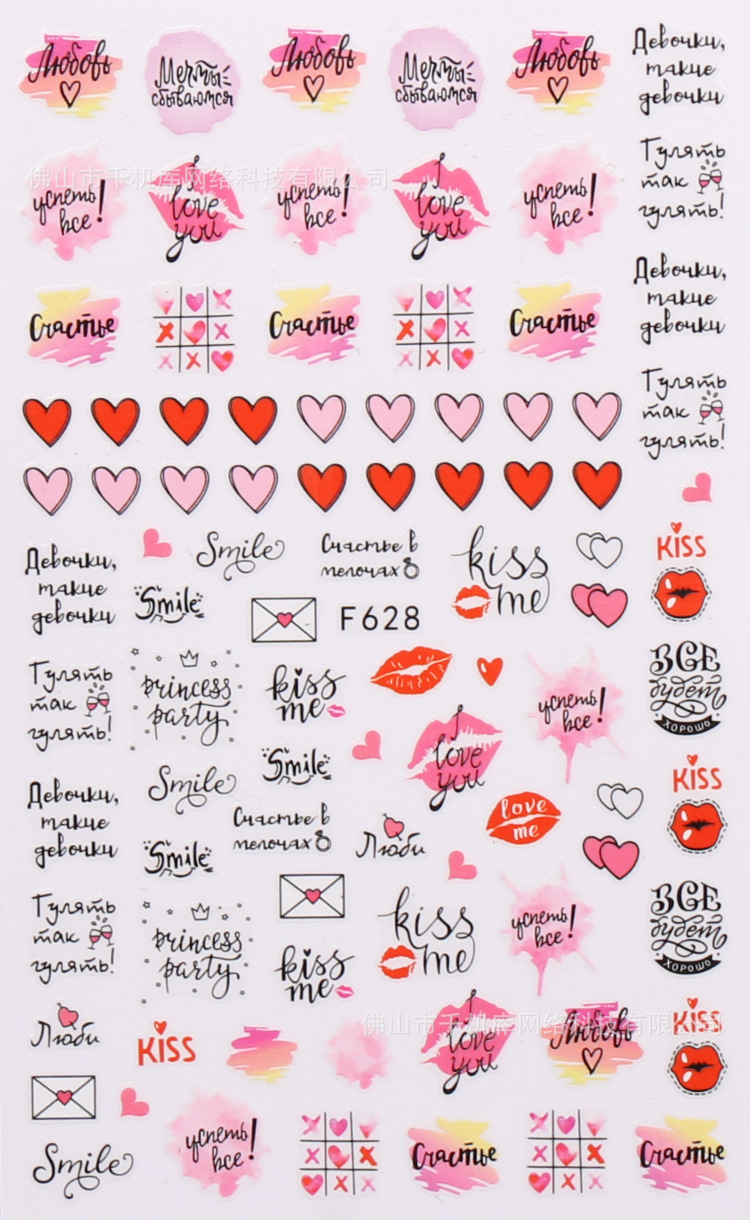 Любовь
Мечты
сбываются
Любовь
Мечты
сбываются
Любовь
Девочки,
такие
девочки
佛山市千机库网络科技有限公司
успеть
все!
I
love
you
успеть
все!
I
love
you
успеть
все!
Гулять
так
гулять!
Счастье
Счастье
Счастье
Девочки,
такие
девочки
Гулять
так
гулять!
Девочки,
такие
девочки
Smile
Smile
Счастье в
мелочах
F628
kiss
me
KISS
Гулять
так
гулять!
princess
party
kiss
me
I
love
you
успеть
все!
ВСЕ
будет
ХОРОШО
Девочки,
такие
девочки
Smile
Smile
Smile
Счастье в
мелочах
Люби
love
me
KISS
Гулять
так
гулять!
princess
party
kiss
me
kiss
me
успеть
все!
ВСЕ
будет
ХОРОШО
Люби
KISS
佛山市千机库网络科技有限公司
I
love
you
Любовь
KISS
Smile
успеть
все!
Счастье
Счастье